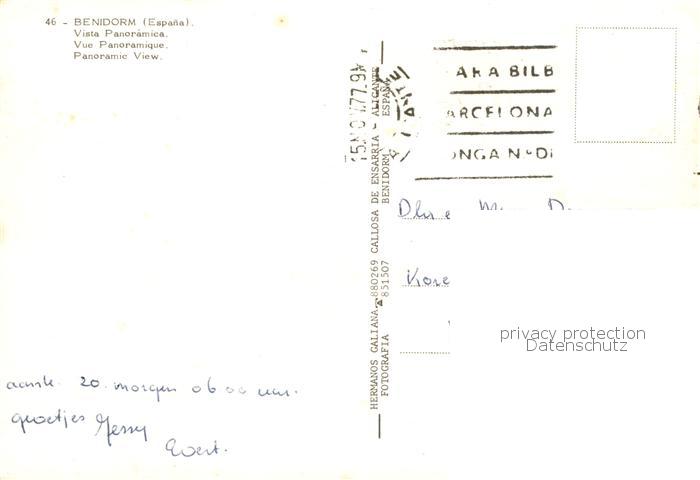 46 - BENIDORM (España).
Vista Panorámica.
Vue Panoramique.
Panoramic View.
15 NOV.77.9M
ALICANTE
ARA BILB
ARCELONA
ONGA Nº DI
HERMANOS GALIANA 880269 CALLOSA DE ENSARRIA - ALICANTE
FOTOGRAFIA 851507 BENIDORM ESPAÑA
Dhr e M D
privacy protection
Datenschutz
20. morgen 06 00 uur.
groetjes Jenny
Evert.